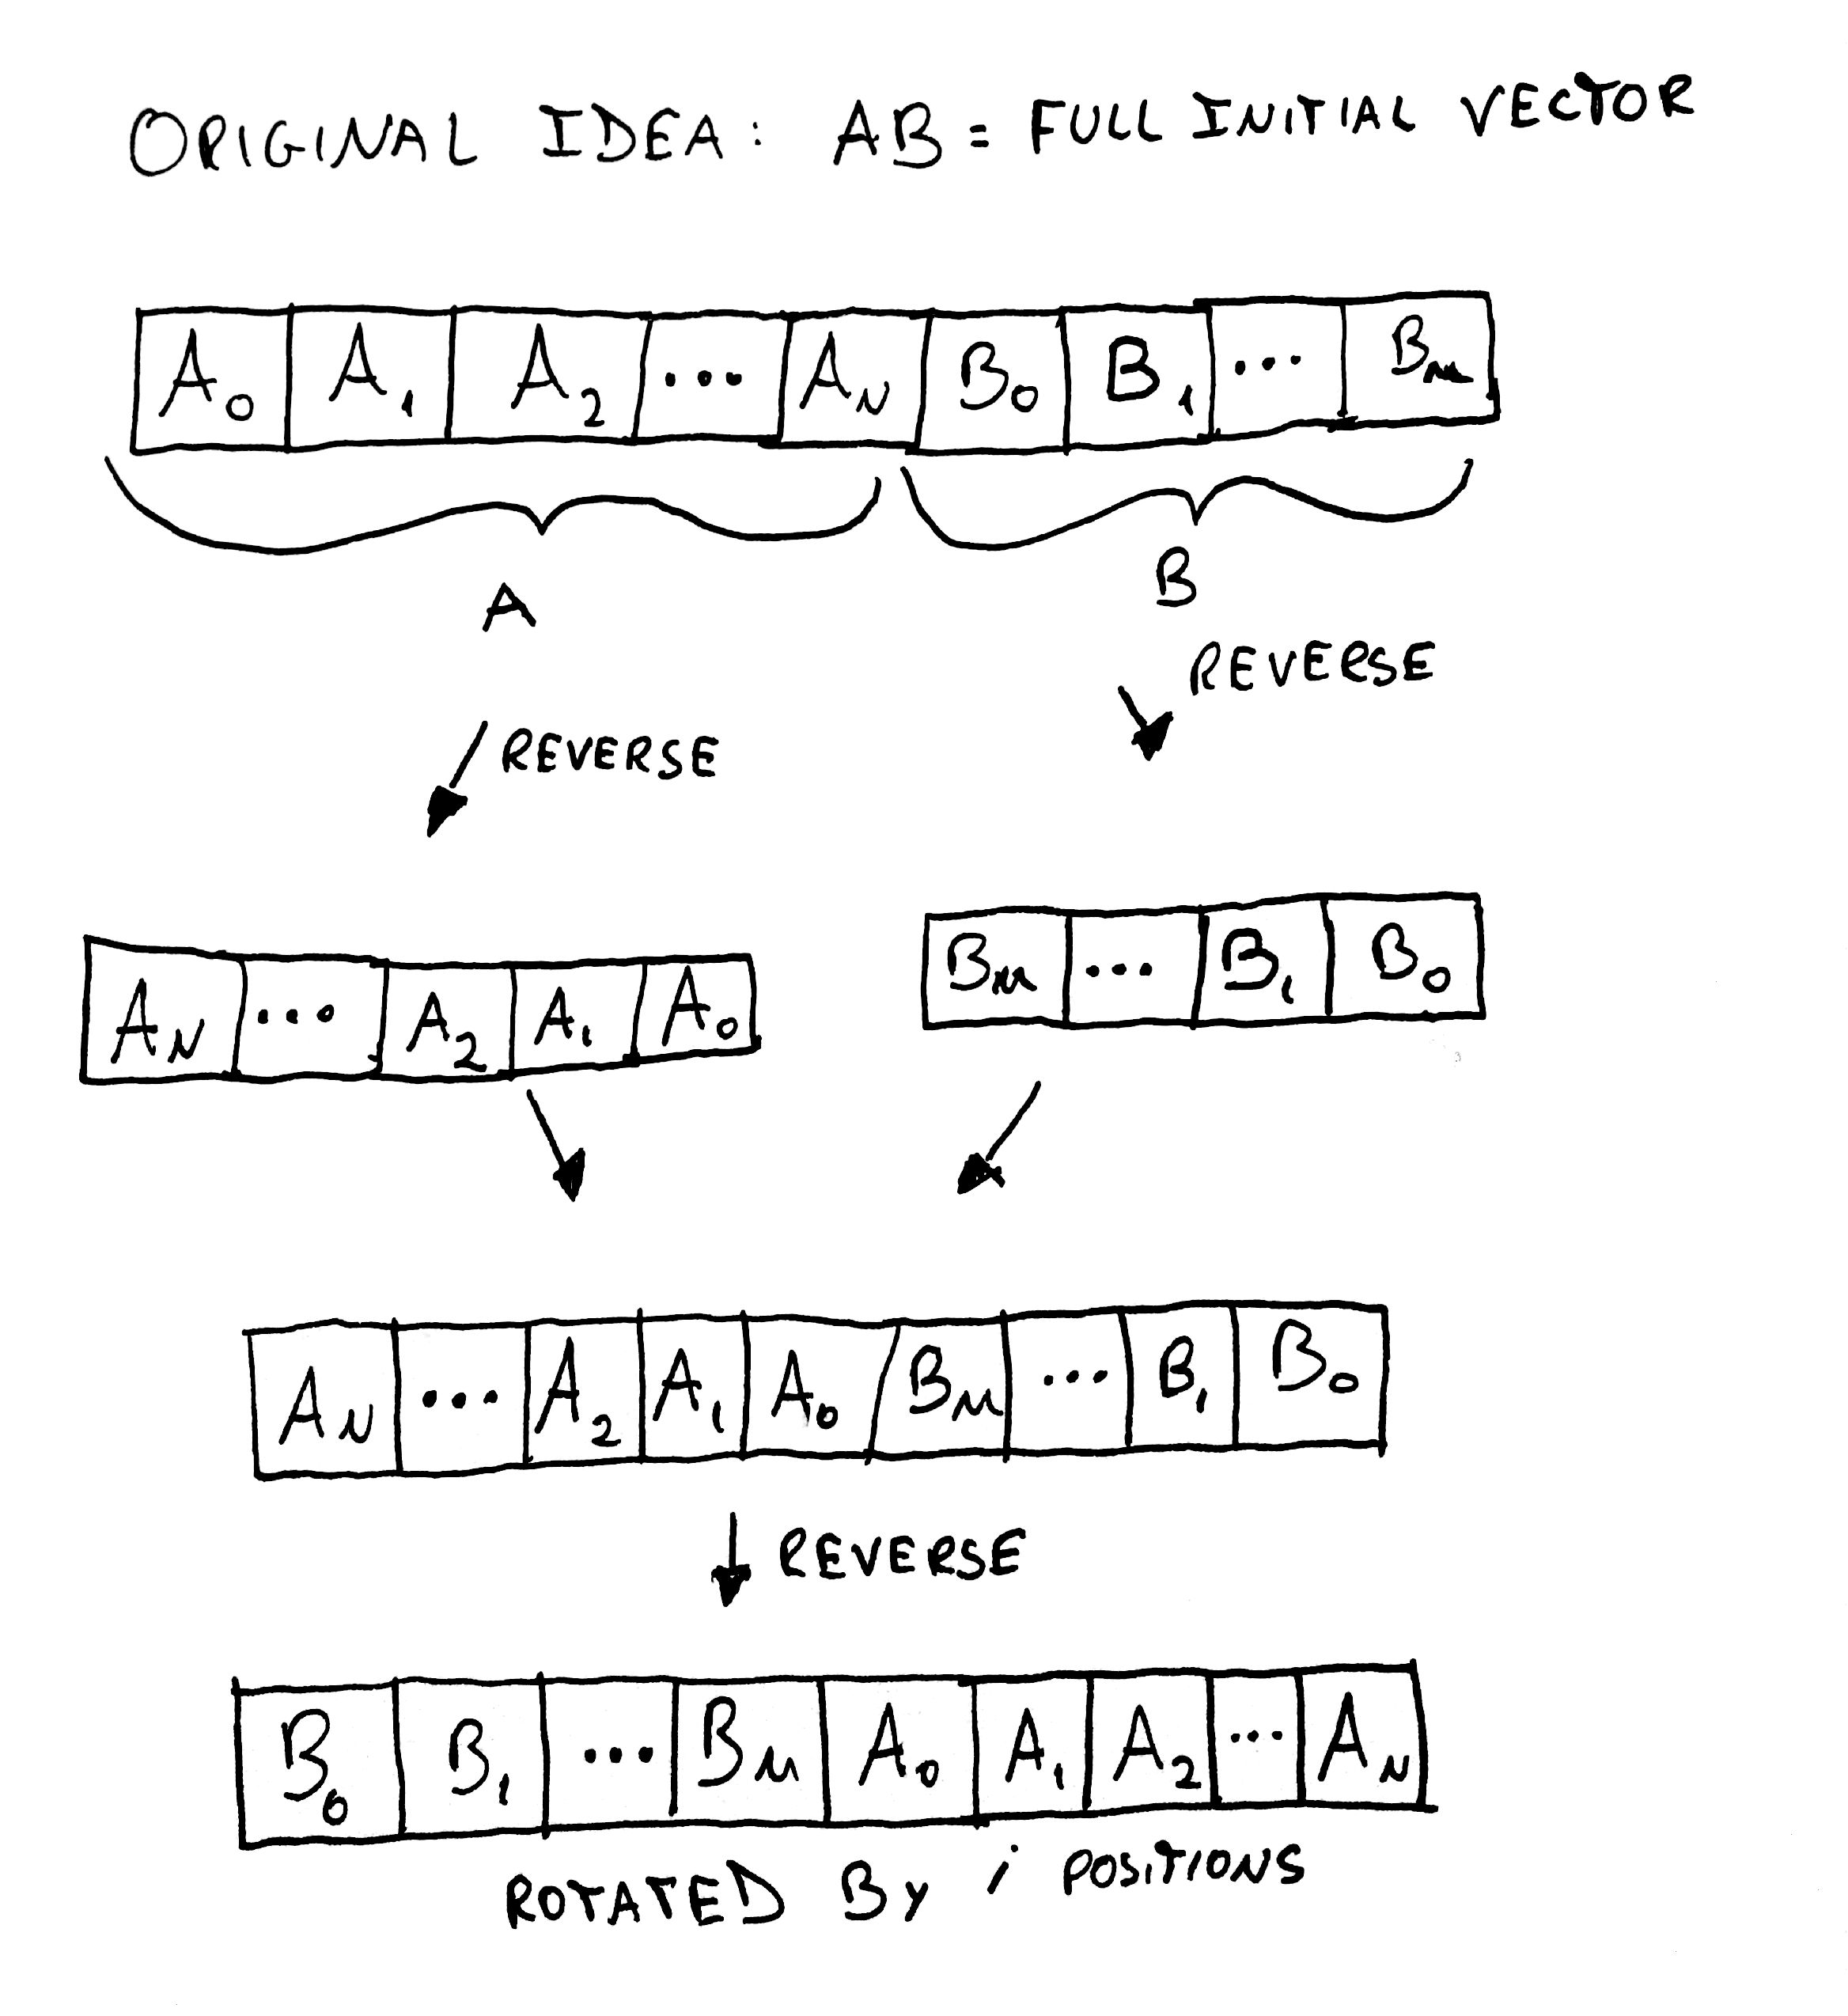 ORIGINAL IDEA: AB = FULL INITIAL VECTOR
A0 A1 A2 ... AN B0 B1 ... BM
A B
REVERSE
REVERSE
BM ... B1 B0
AN ... A2 A1 A0
AN ... A2 A1 A0 BM ... B1 B0
REVERSE
B0 B1 ... BM A0 A1 A2 ... AN
ROTATED BY i POSITIONS